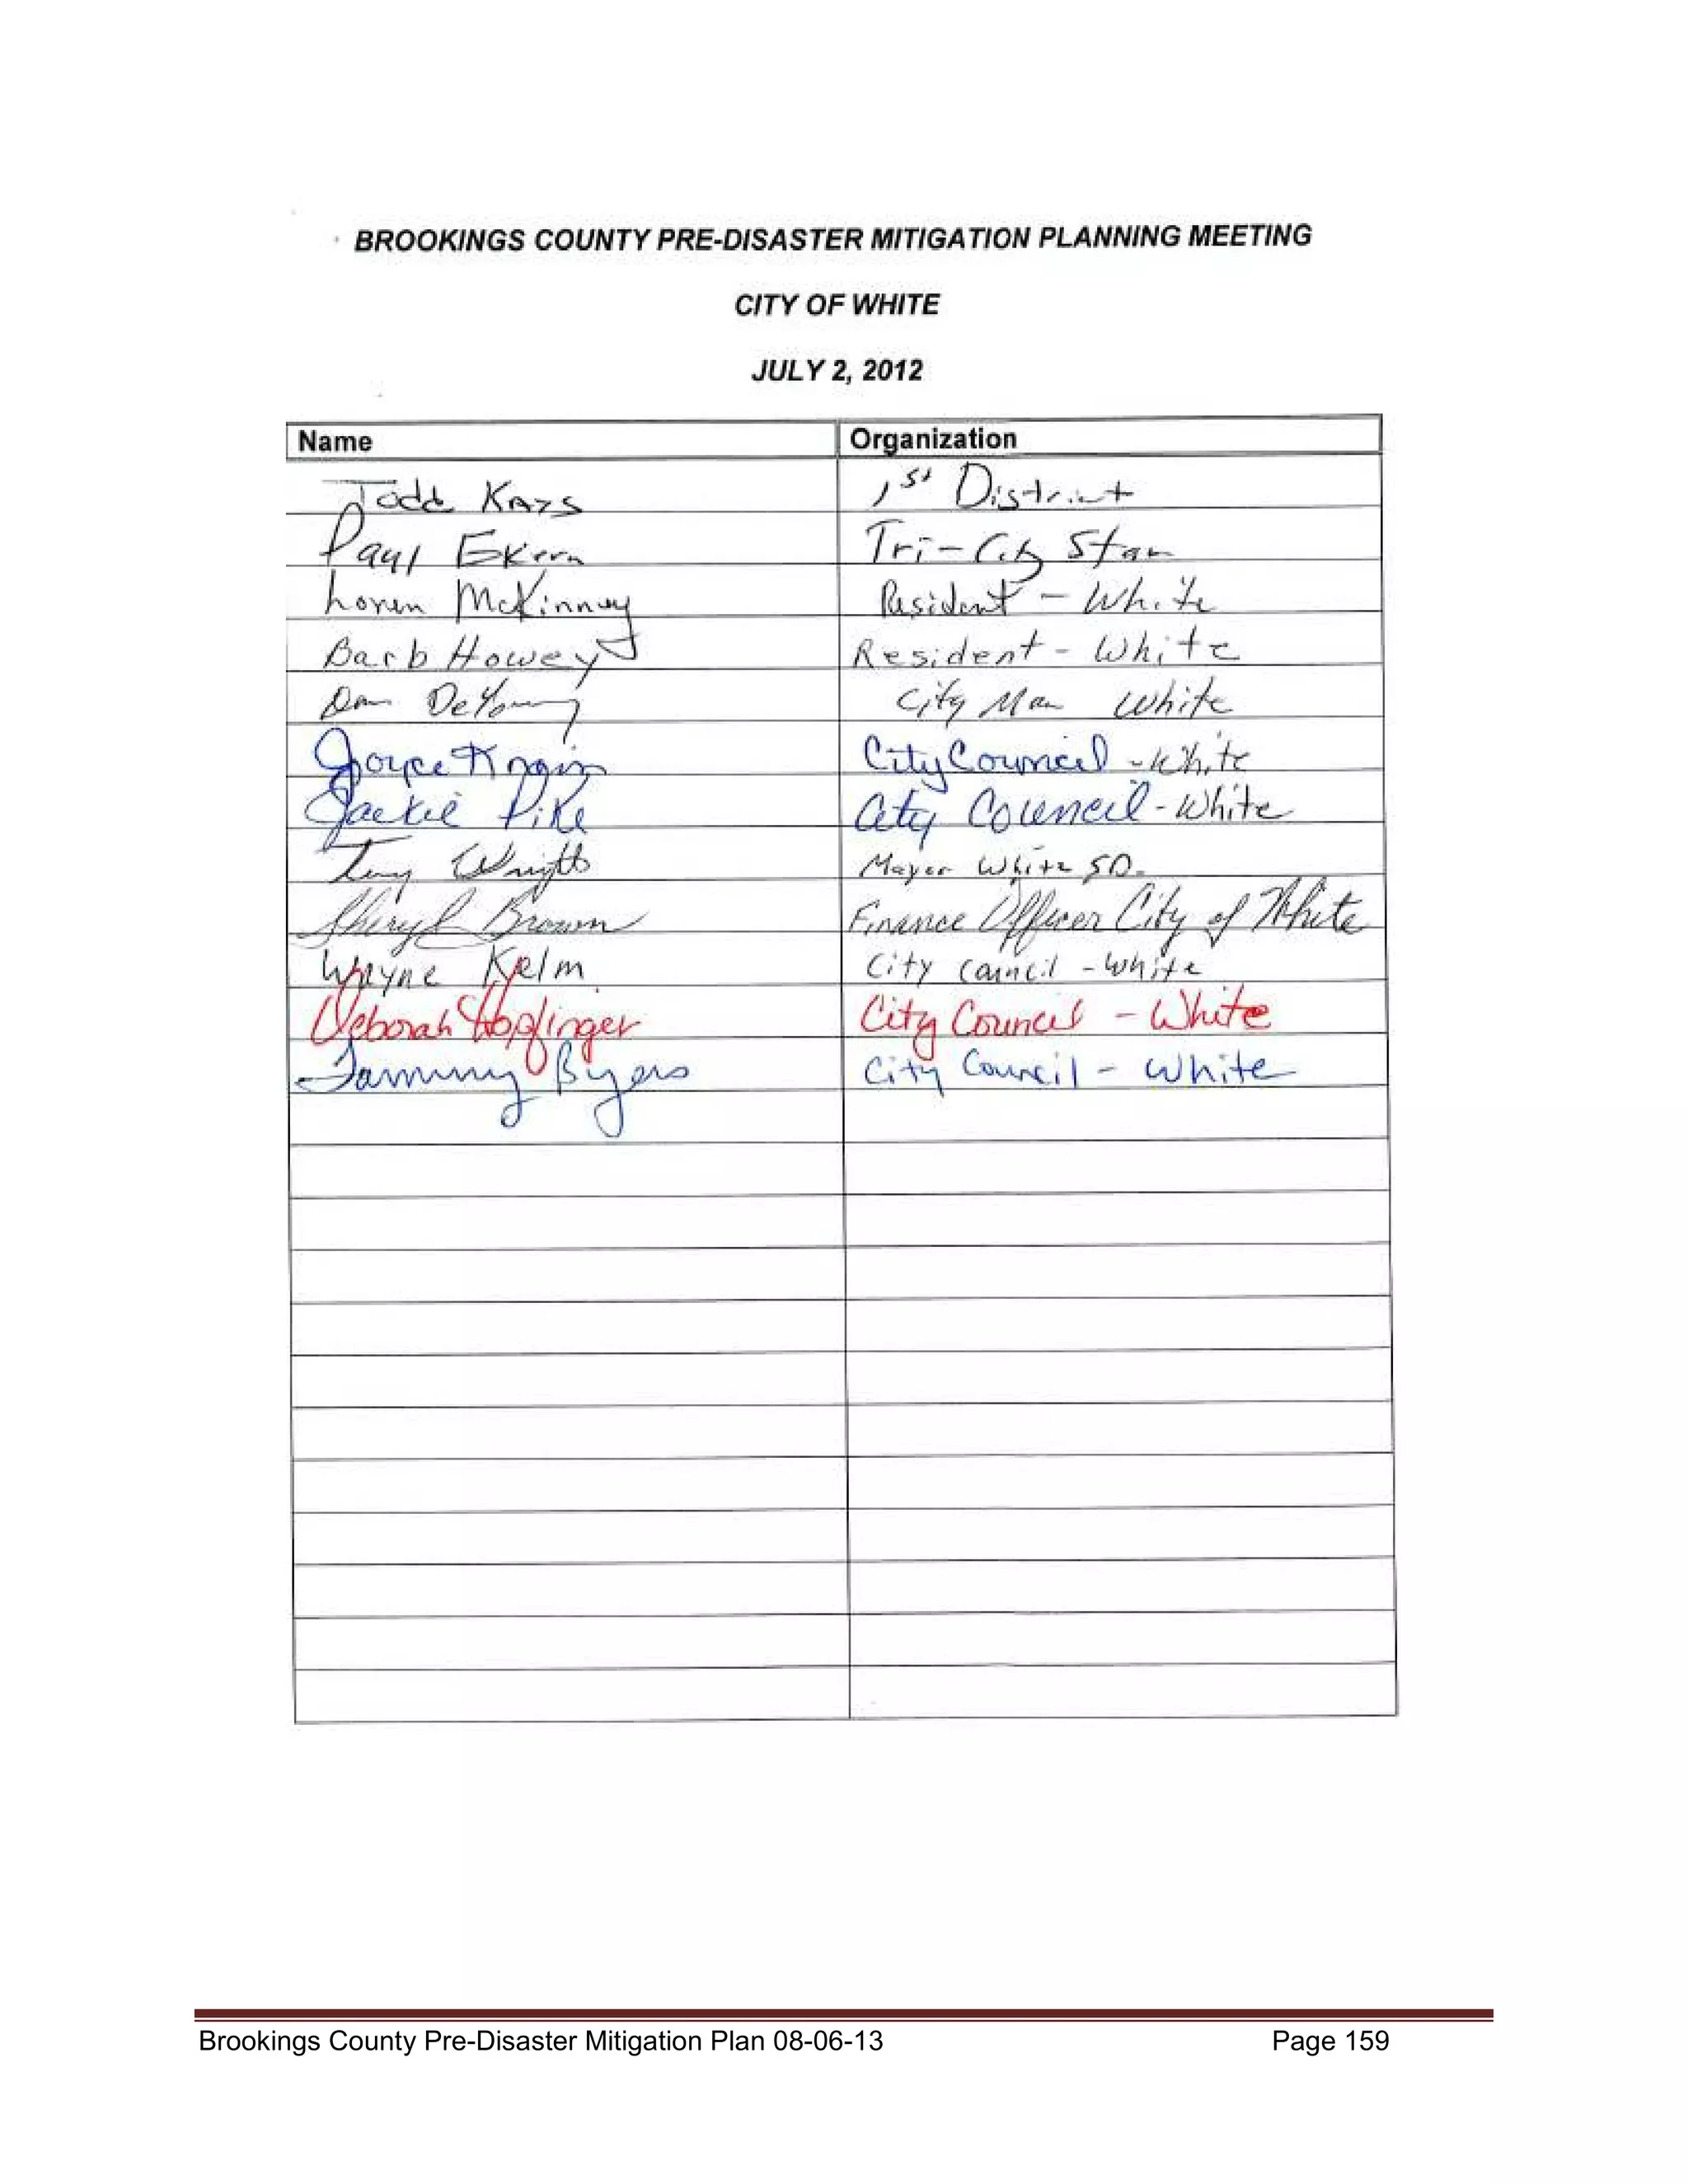 BROOKINGS COUNTY PRE-DISASTER MITIGATION PLANNING MEETING
CITY OF WHITE
JULY 2, 2012
Name Organization
Todd Kays 1st District
Paul Ekern Tri-City Star
Loren McKinney Resident - White
Barb Howey Resident - White
Dan DeYoung City Man White
Joyce City Council - White
Jackie Pike City Council - White
Mayor White SD.
Sheryl Brown Finance Officer City of White
Wayne Kelm City Council - White
Deborah Hopfinger City Council - White
Tammy Byers City Council - White
Brookings County Pre-Disaster Mitigation Plan 08-06-13 Page 159